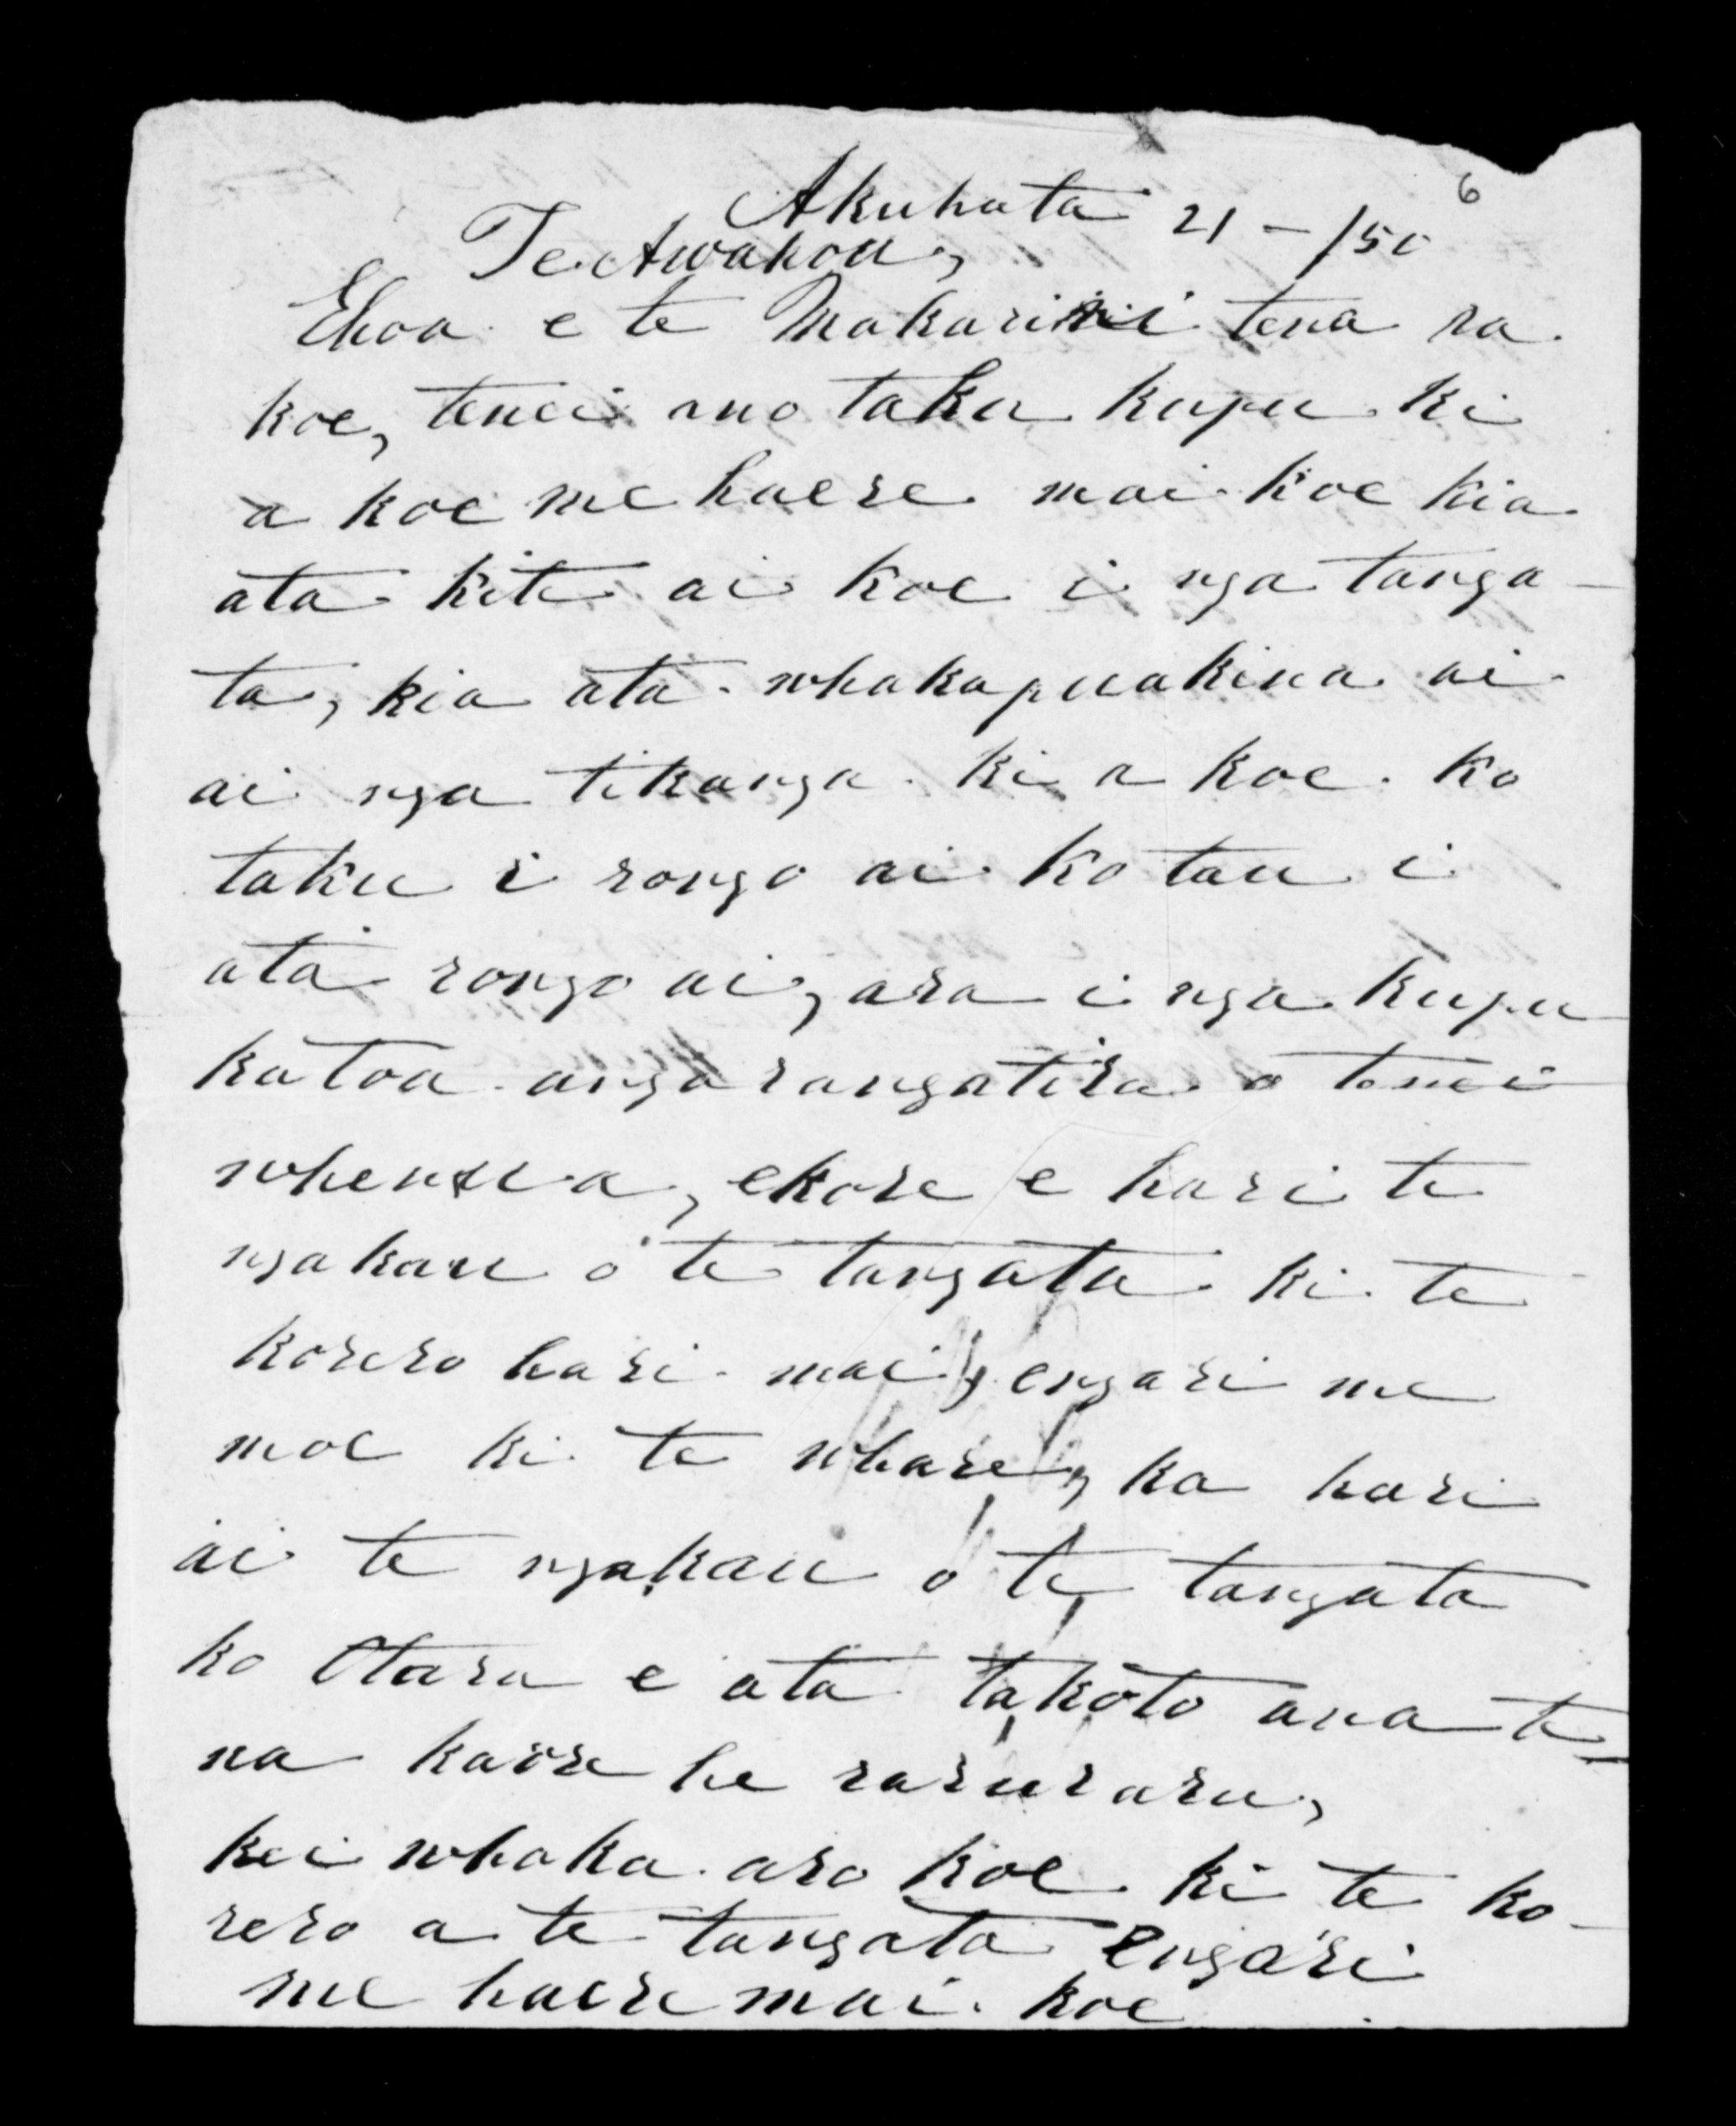 Akuhata 21 - /50
6
Te Awahou,
Ehoa e te Makarini tena ra
koe, tenei ano taku kupu ki
a koe me haere mai koe kia
ata kite ai koe i nga tanga-
ta, kia ata whakapuakina ai
ai nga tikanga ki a koe. ko
taku i rongo ai ko tau i
ata rongo ai, ara i nga kupu
katoa anga rangatira o tenei
whenua, ekore e hari te
ngakau o te tangata ki te
korero hari mai, engari me
moe ki te whare, ka hari
ai te ngakau o te tangata
ko Otara e ata takoto ana te
na kaore he raruraru,
kei whaka aro koe ki te ko-
rero a te tangata engari
me haere mai koe